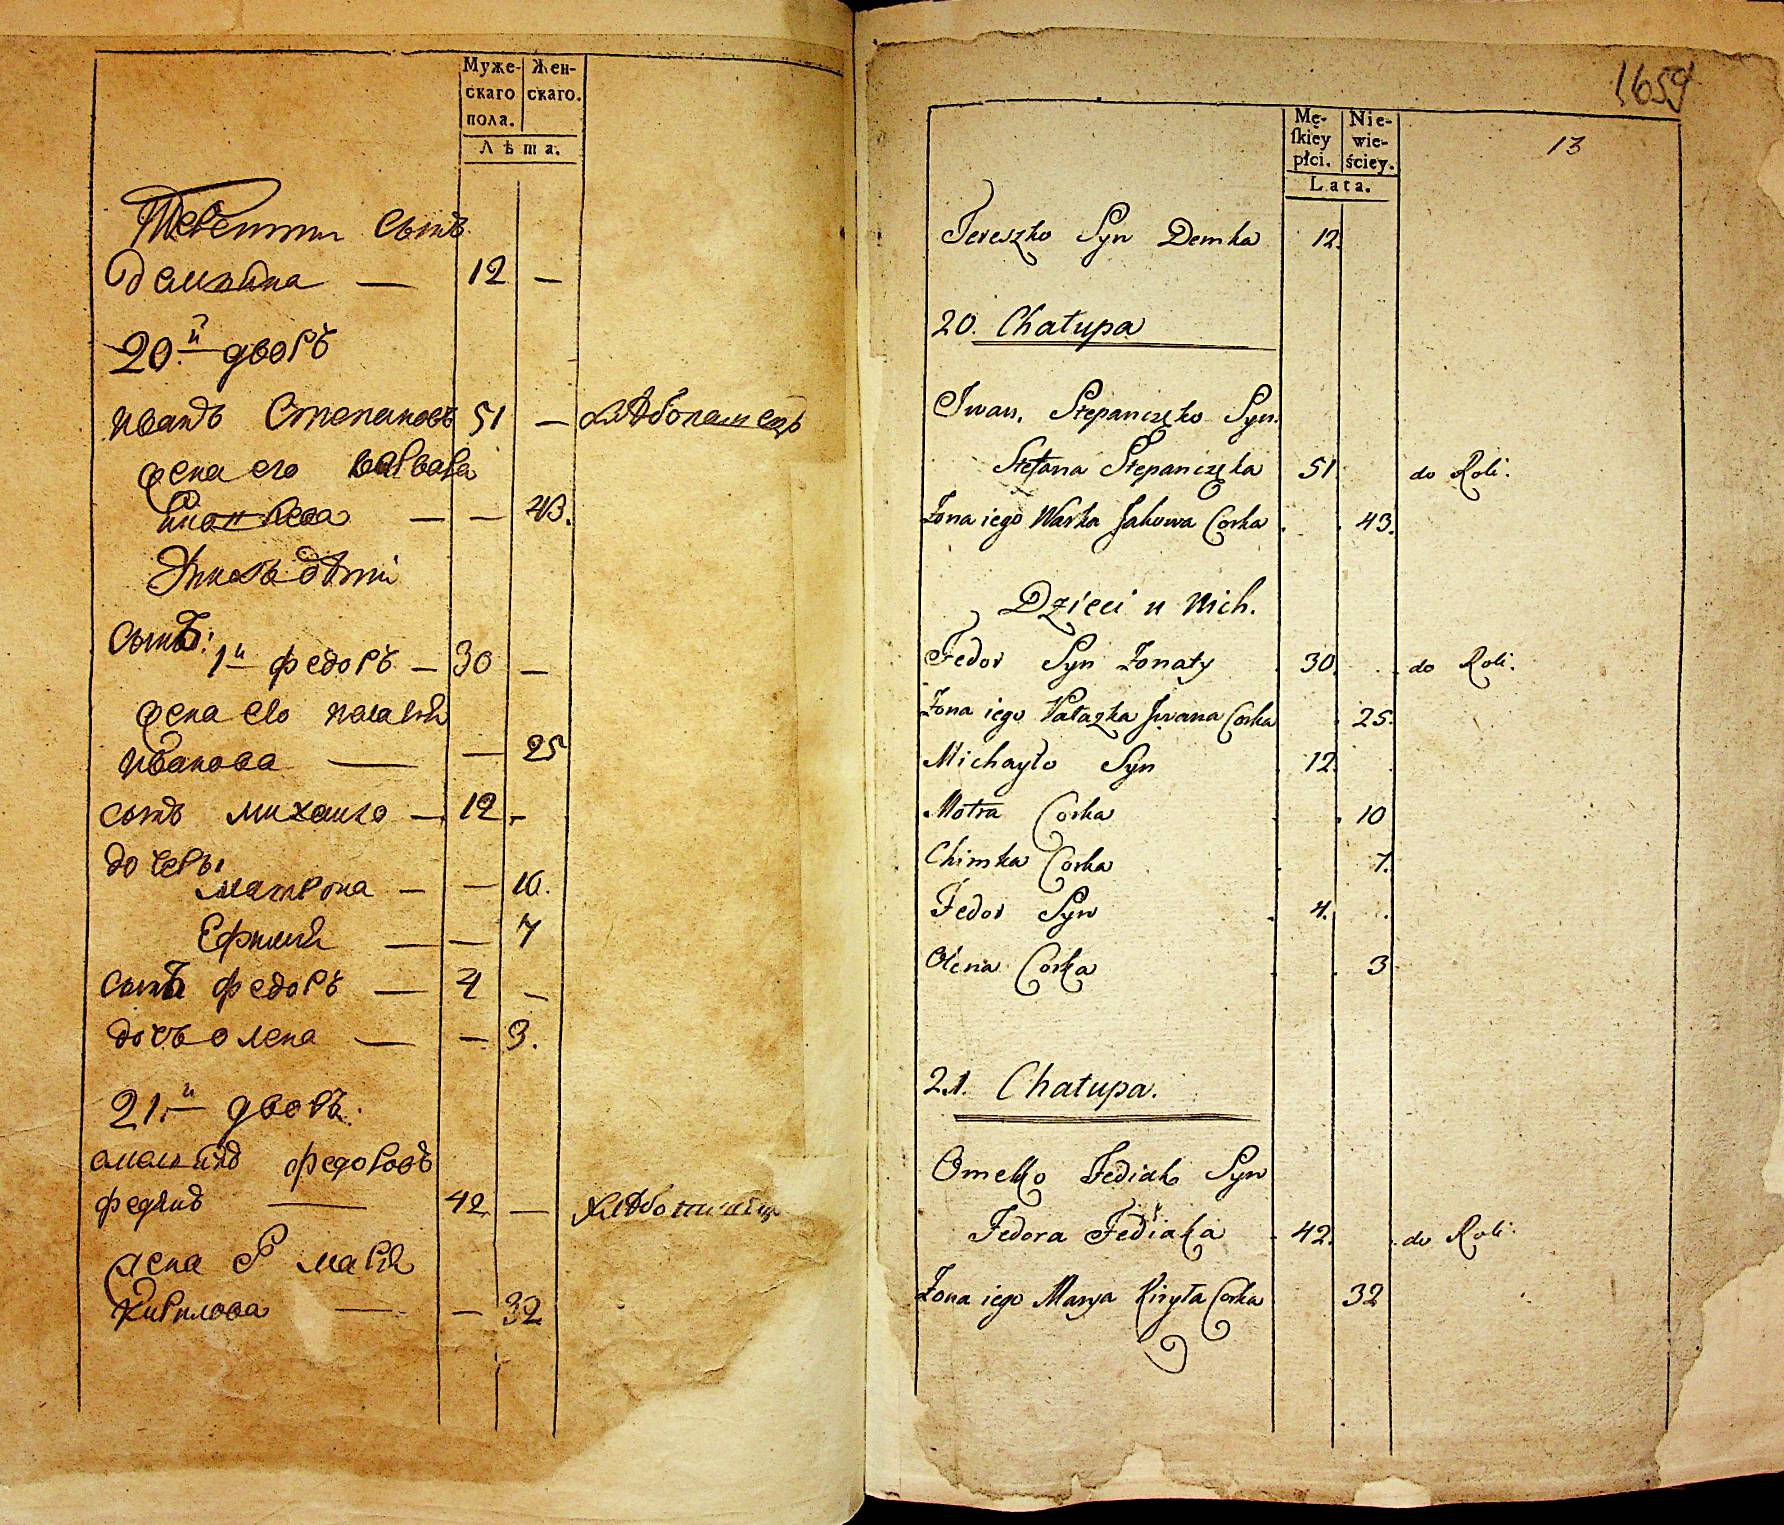 Муже-
скаго
пола.
Жен-
скаго.
Лѣта.
сынъ
Демкина — 12 —
20.й дворъ
Иванъ Степановъ 51 — хлѣбопашецъ
жена его варвара
— — 43.
дѣти
сынъ:
1й федоръ — 30 —
жена его палагия
иванова — — 25
сынъ михаило — 12 -
дочеры
матрона — — 10.
Ефимия — — 7
сынъ федоръ — 4 —
дочь олена — — 3.
21.й дворъ.
федоровъ
42 —
жена марія
Кирилова — — 32
1659
13
Mę-
skiey
płci.
Nie-
wie-
ściey.
Lata.
Tereszko Syn Demka 12.
20. Chałupa
Iwan. Stepanczęko Syn.
Stefana Stepanczęka 51. do Roli.
Żona iego Warka Jakowa Corka . . 43.
Dzieci u Nich.
Fedor Syn Żonaty 30. . do Roli.
Żona iego Pałazka Jwana Corka . 25.
Michayło Syn 12. .
Motra Corka . . 10
Chimka Corka . 7.
Fedor Syn . 4. .
Olena Corka . . 3
21. Chałupa.
Omelko Fediak Syn
Fedora Fediaka . 42. . do Roli.
Żona iego Marya Kiryła Corka 32